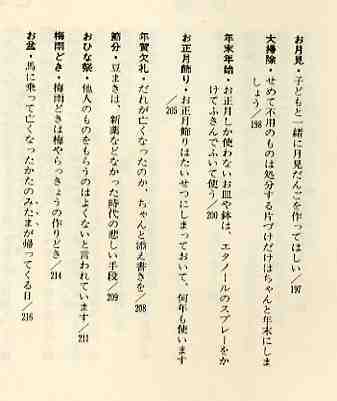 お月見・子どもと一緒に月見だんごを作ってほしい／197
大掃除・せめて不用のものは処分する片づけだけはちゃんと年末にしま
しょう／198
年末年始・お正月しか使わないお皿や鉢は、エタノールのスプレーをか
けてふきんでふいて使う／200
お正月飾り・お正月飾りはたいせつにしまっておいて、何年も使います
／205
年賀欠礼・だれが亡くなったのか、ちゃんと添え書きを／208
節分・豆まきは、新薬などなかった時代の悲しい手段／209
おひな祭・他人のものをもらうのはよくないと言われています／211
梅雨どき・梅雨どきは梅やらっきょうの作りどき／214
お盆・馬に乗って亡くなったかたのみたまが帰ってくる日／216